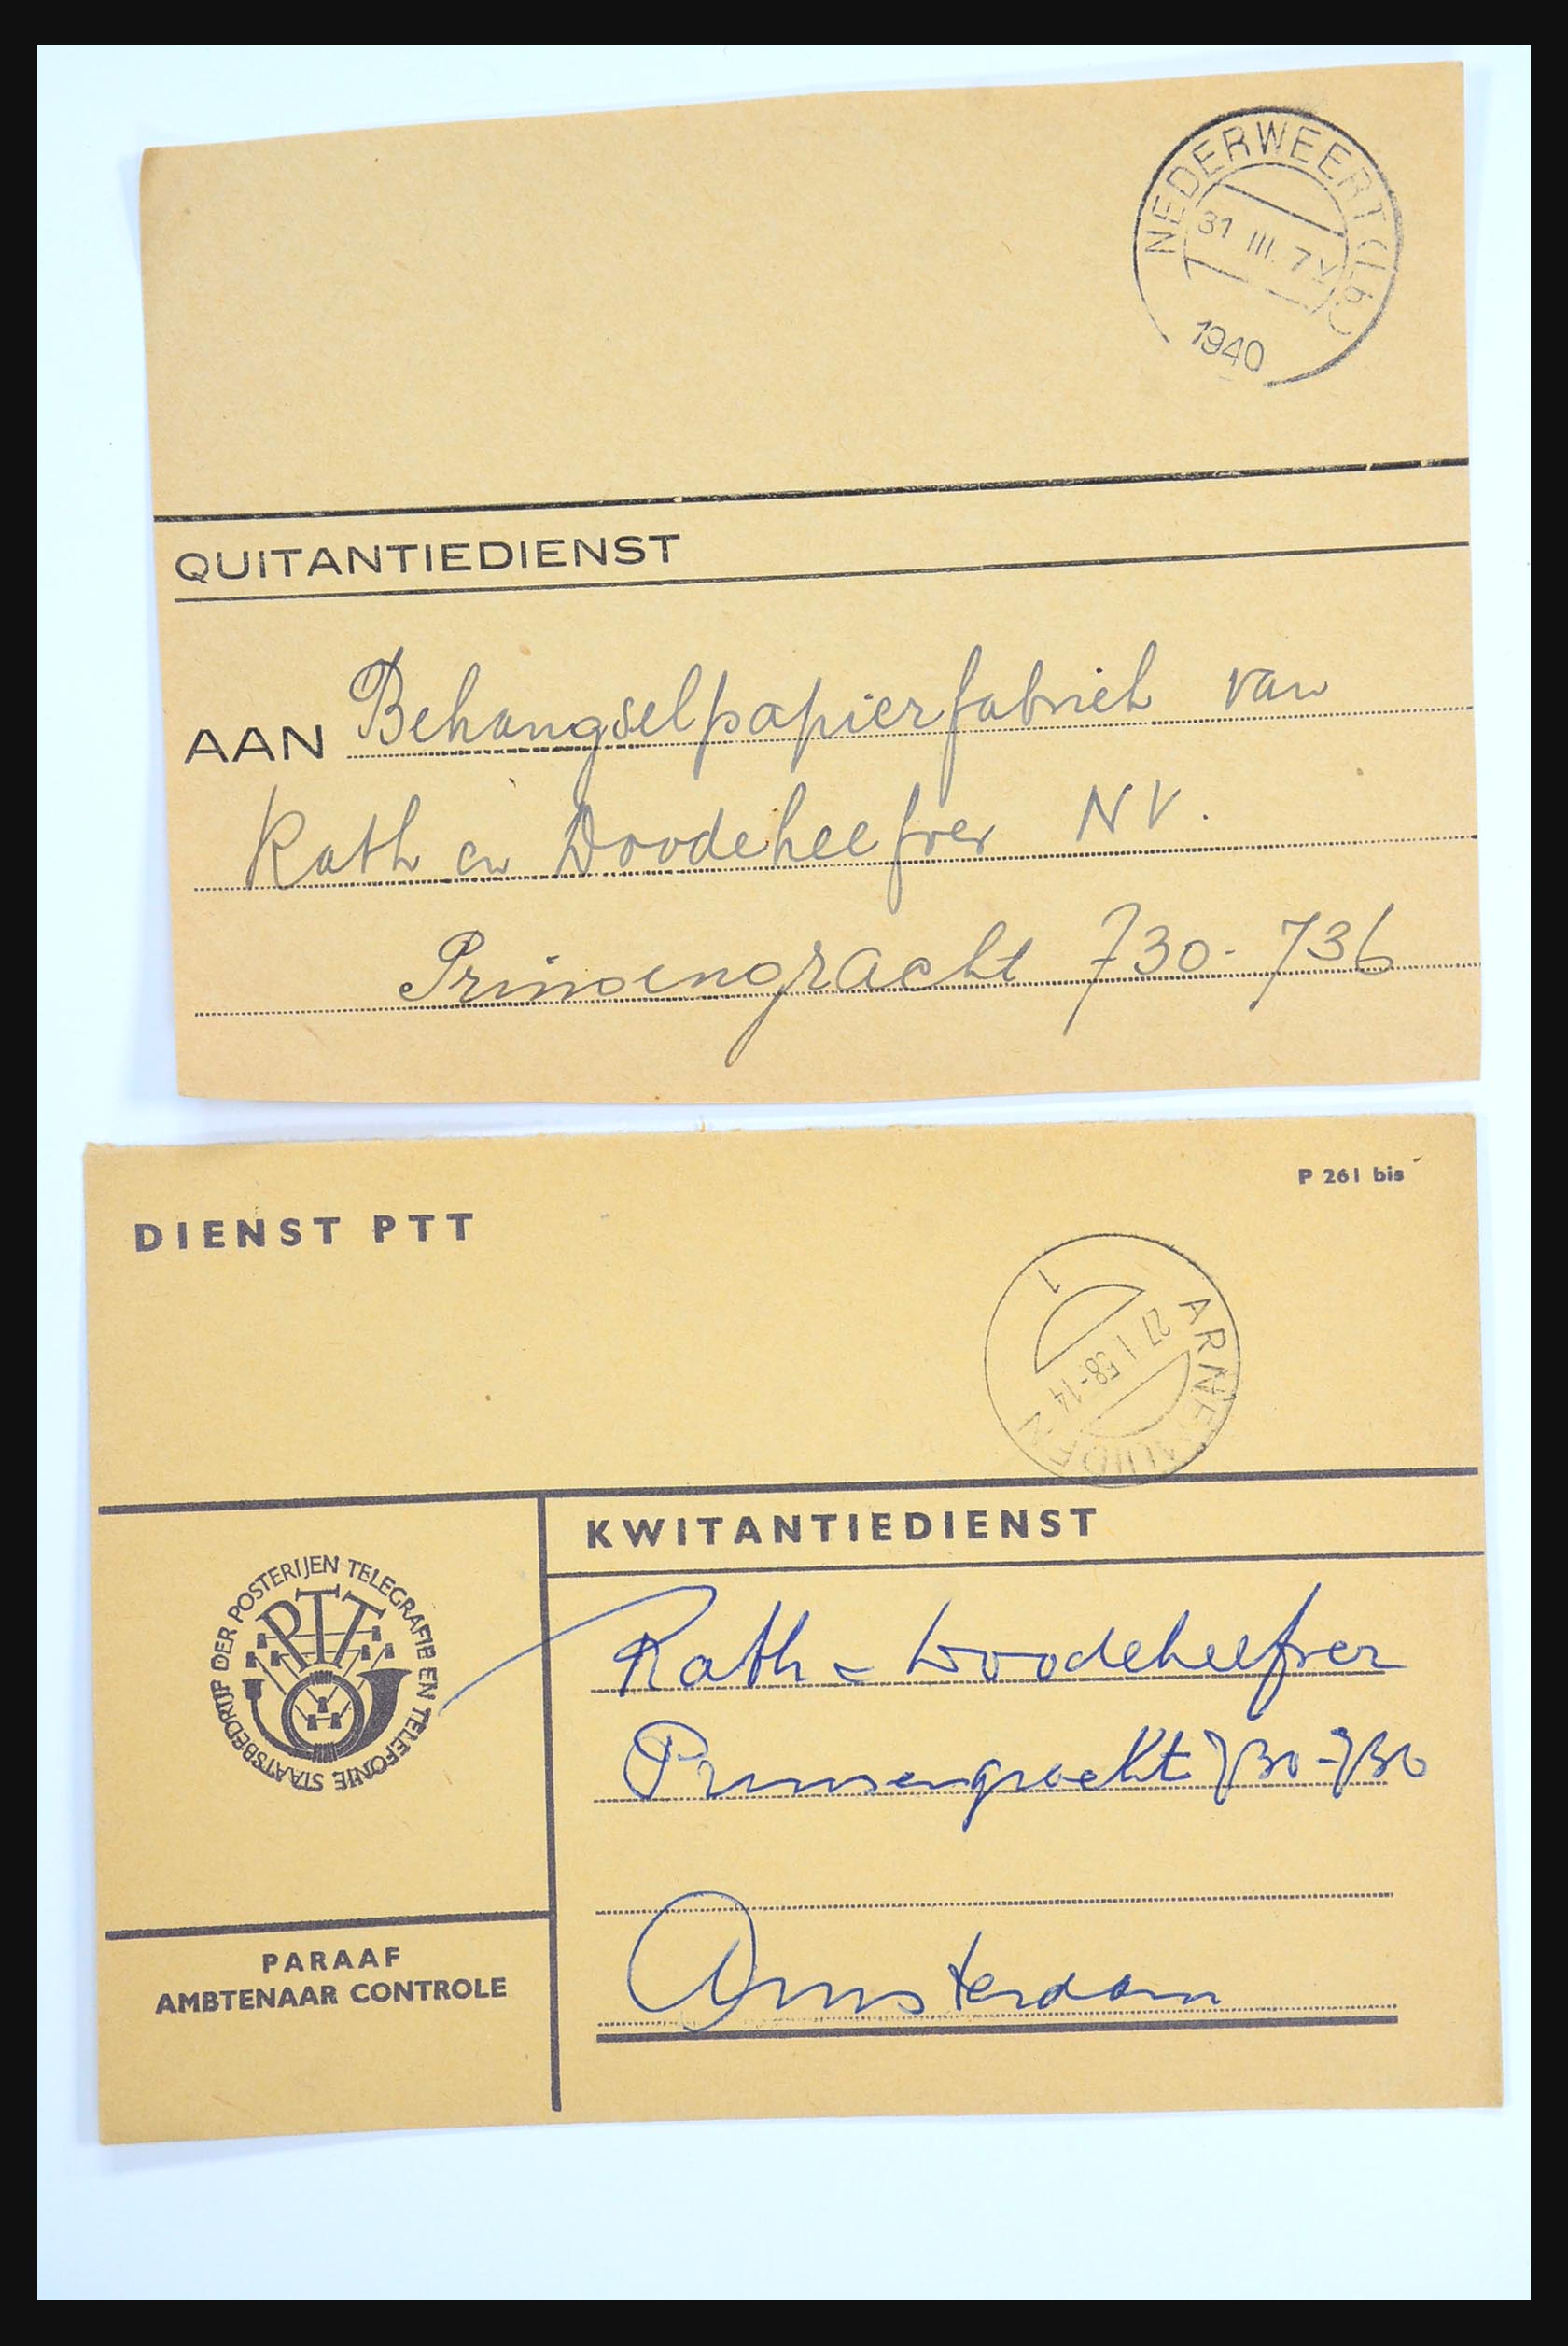 NEDERWEERT (LB)
31 III. 7 V
1940
QUITANTIEDIENST
AAN Behangselpapierfabriek van
Rath en Doodeheefver NV.
Prinsengracht 730-736
P 261 bis
DIENST PTT
ARNEMUIDEN
27 I 58-14
1
KWITANTIEDIENST
STAATSBEDRIJF DER POSTERIJEN TELEGRAFIE EN TELEFONIE
PTT
Rath - Doodeheefver
Prinsengracht 730-736
Amsterdam
PARAAF
AMBTENAAR CONTROLE